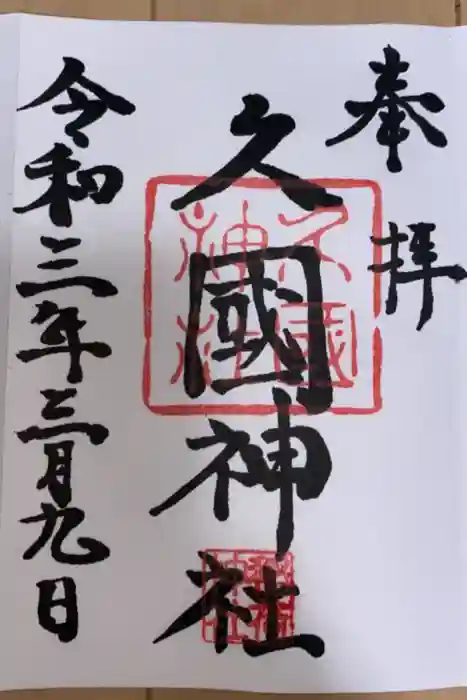 奉拝
久國神社
令和三年三月九日
久國神社